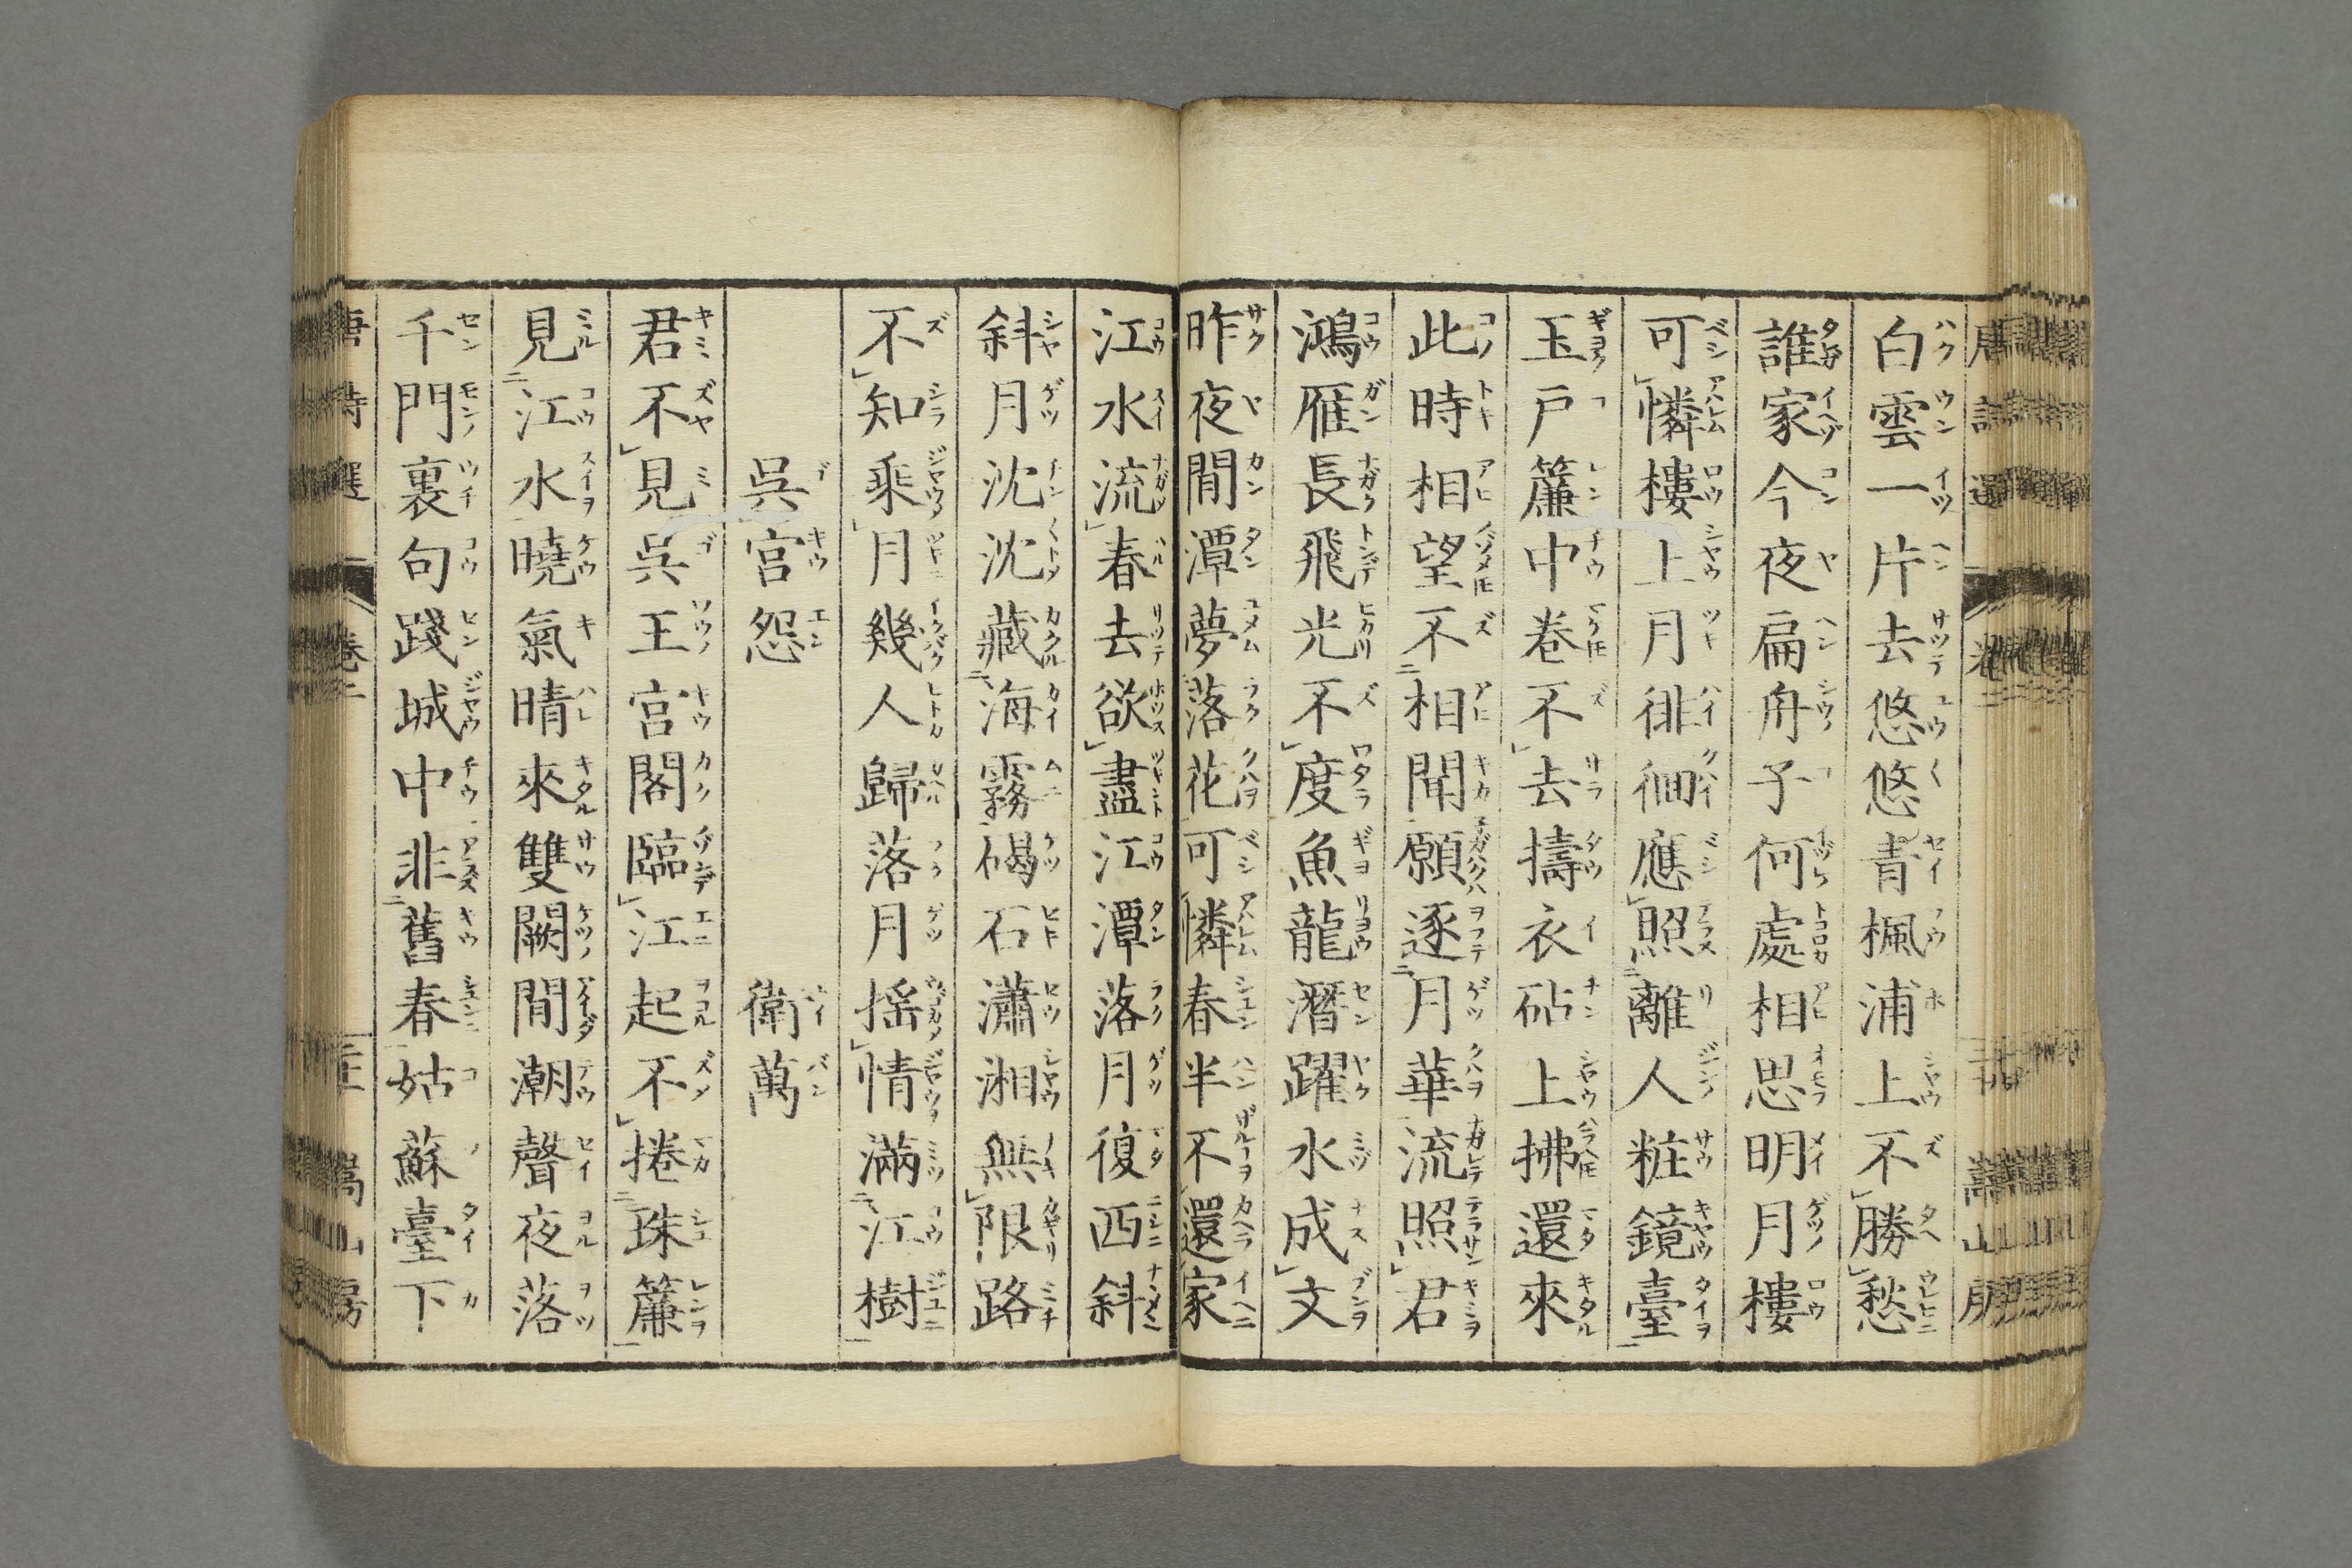 白雲一片去悠悠青楓浦上不勝愁
誰家今夜扁舟子何處相思明月樓
可憐樓上月徘徊應照離人粧鏡臺
玉戸簾中巻不去擣衣砧上拂還來
此時相望不相聞願逐月華流照君
鴻雁長飛光不度魚龍潛躍水成文
昨夜閒潭夢落花可憐春半不還家
江水流春去欲盡江潭落月復西斜
斜月沈沈藏海霧碣石瀟湘無限路
不知乘月幾人歸落月揺情滿江樹
呉宮怨 衛萬
君不見呉王宮閣臨江起不捲珠簾
見江水曉氣晴來雙闕閒潮聲夜落
千門裏句踐城中非舊春姑蘇臺下
唐詩選 巻二 嵩山房